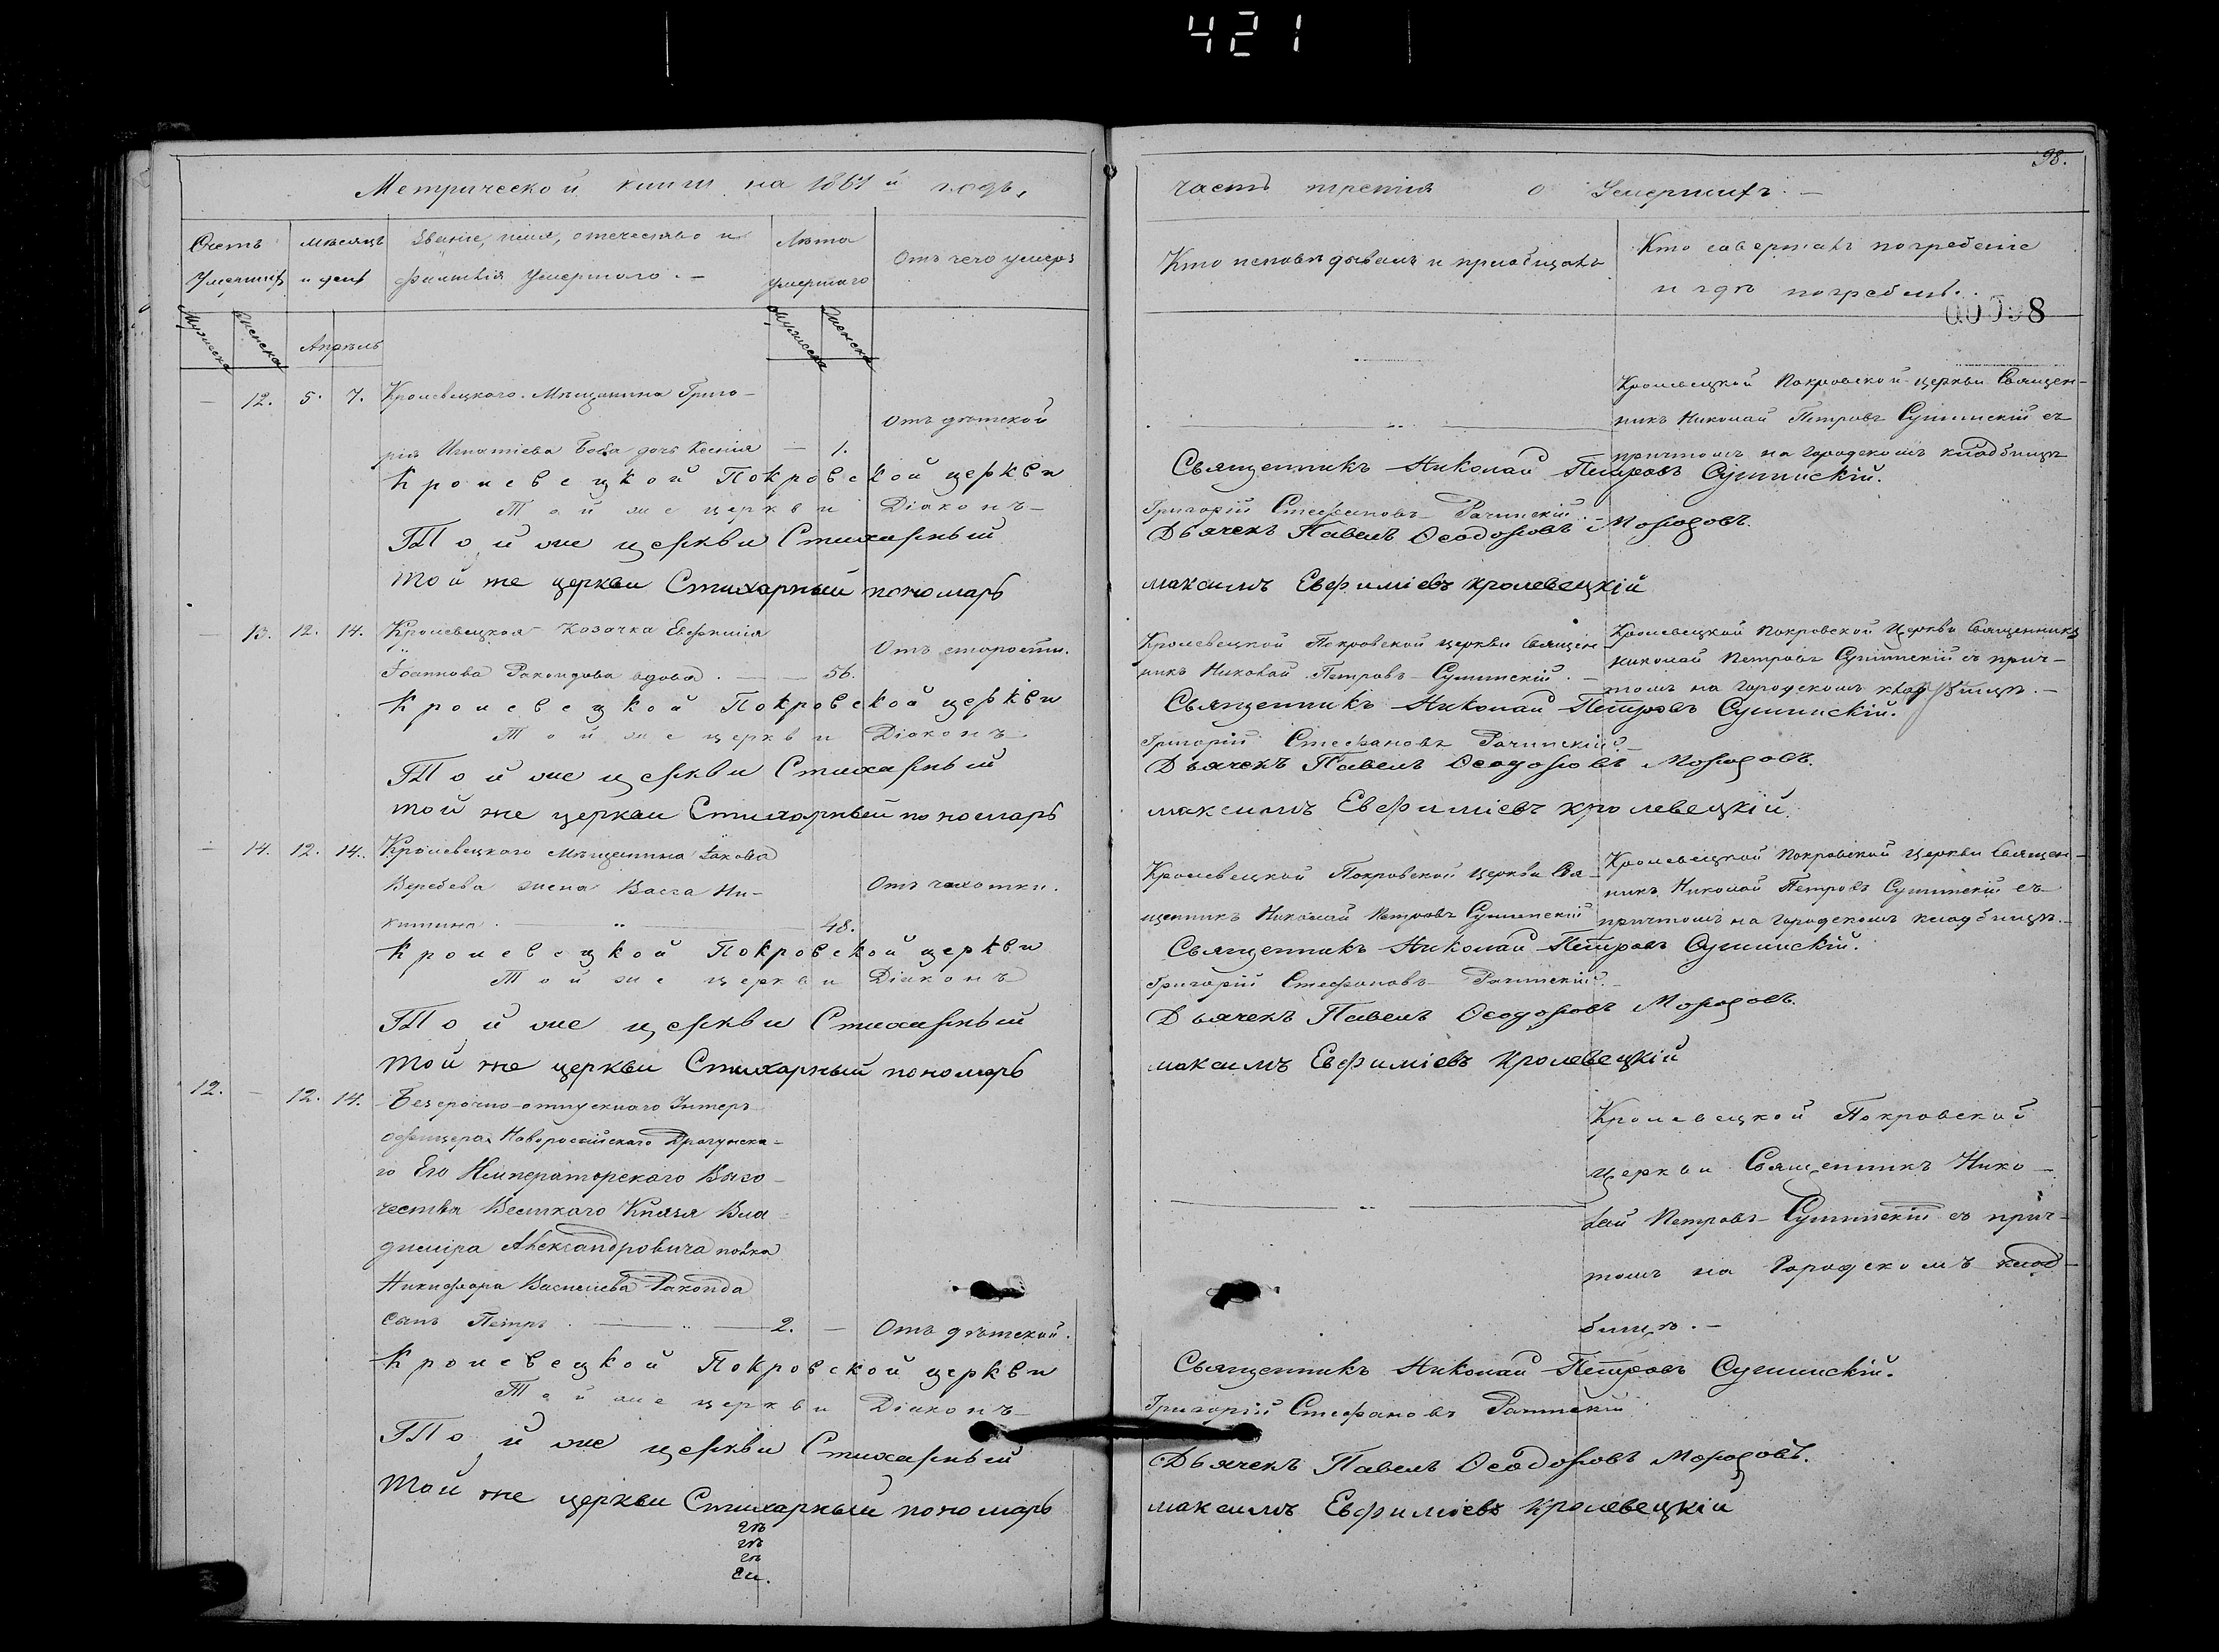 421
Метрической книги на 1867й годъ,
Счетъ умершихъ
мѣсяцъ и день
Званіе, имя, отечество и фамилія умершаго. —
Лѣта умершаго
Отъ чего умеръ
Мужеска
Женска
Апрѣль
Мужеска
Женска
— 12. 5. 7. Кролевецкаго Мѣщанина Григо-
Отъ дѣтской
рія Игнатіева Баба дочь Ксенія — 1.
Кролевецкой Покровской церкви
Той же церкви Діаконъ
Той же церкви Стихарный
той же церкви Стихарный пономарь
— 13. 12. 14. Кролевецкая козачка Евфимія
Отъ старости.
Іоаннова Ракондова вдова. — — 56.
Кролевецкой Покровской церкви
Той же церкви Діаконъ
Той же церкви Стихарный
той же церкви Стихарный пономарь
— 14. 12. 14. Кролевецкаго мѣщанина Іакова
Веребева жена Васса Ни-
Отъ чахотки.
китина 48.
Кролевецкой Покровской церкви
Той же церкви Діаконъ
Той же церкви Стихарный
той же церкви Стихарный пономарь
12. — 12. 14. Безсрочно-отпускнаго Унтеръ
офицера Новороссійскаго Драгунска-
го Его Императорскаго Высо-
чества Великаго Князя Вла-
диміра Александровича полка
Никифора Васильева Раконда
сынъ Петръ. — 2. — Отъ дѣтской.
Кролевецкой Покровской церкви
Той же церкви Діаконъ
Той же церкви Стихарный
той же церкви Стихарный пономарь
98.
часть третія о Умершихъ. —
Кто исповѣдывалъ и пріобщалъ
Кто совершалъ погребеніе
и гдѣ погребенъ.
Кролевецкой Покровской церкви Священ-
никъ Николай Петровъ Сушинскій съ
причтомъ на Городскомъ кладбищѣ
Священникъ Николай Петровъ Сушинскій.
Григорій Стефановъ Рачинскій. —
Дьячекъ Павелъ Ѳеодоровъ Мороговъ.
максимъ Евфиміевъ кролевецкій
Кролевецкой Покровской церкви Священ-
никъ Николай Петровъ Сушинскій. —
Кролевецкой Покровской Церкви Священникъ
Николай Петровъ Сушинскій съ прич-
томъ на Городскомъ кладбищѣ. —
Священникъ Николай Петровъ Сушинскій.
Григорій Стефановъ Рачинскій. —
Дьячекъ Павелъ Ѳеодоровъ Мороговъ.
максимъ Евфиміевъ кролевецкій.
Кролевецкой Покровской Церкви Свя-
щенникъ Николай Петровъ Сушинскій
Кролевецкой Покровской Церкви Священ-
никъ Николай Петровъ Сушинскій съ
причтомъ на Городскомъ кладбищѣ. —
Священникъ Николай Петровъ Сушинскій.
Григорій Стефановъ Рачинскій. —
Дьячекъ Павелъ Ѳеодоровъ Мороговъ.
максимъ Евфиміевъ кролевецкій
Кролевецкой Покровской
церкви Священникъ Нико-
лай Петровъ Сушинскій съ прич-
томъ на Городскомъ клад-
бищѣ. —
Священникъ Николай Петровъ Сушинскій.
Григорій Стефановъ Рачинскій
Дьячекъ Павелъ Ѳеодоровъ Мороговъ.
максимъ Евфиміевъ кролевецкій